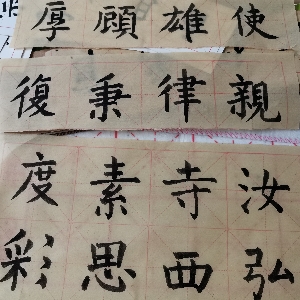 厚顧雄使
復秉律親
度素寺汝
彩思西弘